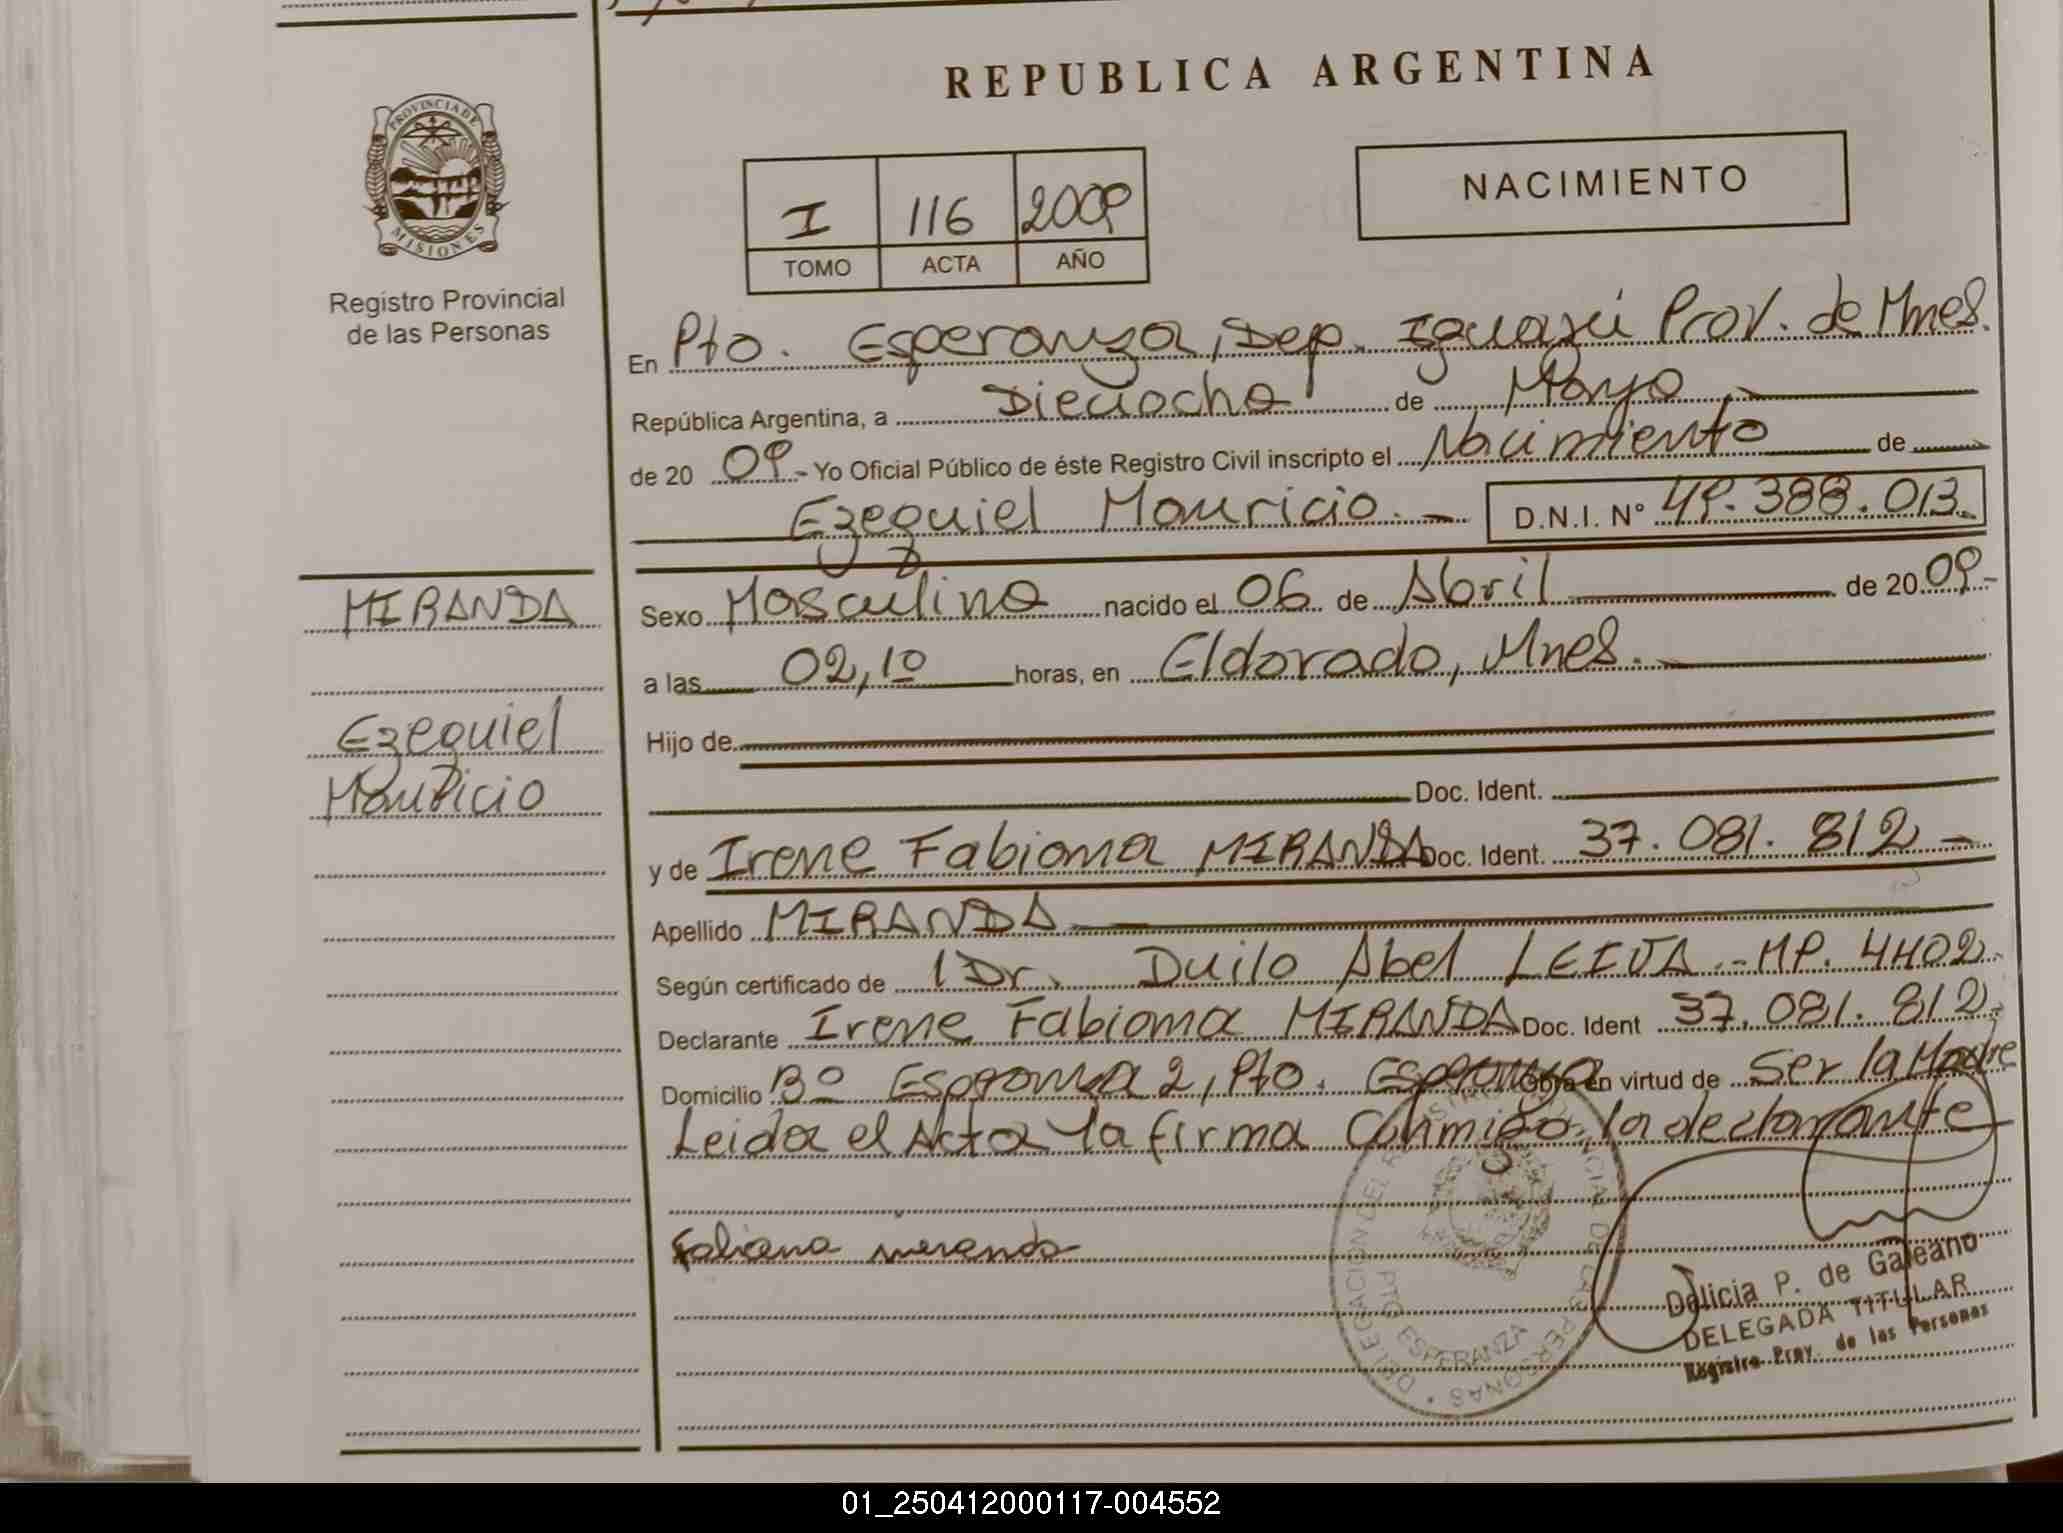 REPUBLICA ARGENTINA
PROVINCIA DE
MISIONES
Registro Provincial
de las Personas
I 116 2009
TOMO ACTA AÑO
NACIMIENTO
En Pto. Esperanza, Dep. Iguazú Prov. de Mnes.
República Argentina, a Dieciocho de Mayo
de 20 09.- Yo Oficial Público de éste Registro Civil inscripto el Nacimiento de
Ezequiel Mauricio.- D.N.I. N° 49.388.013.
MIRANDA
Ezequiel
Mauricio
Sexo Masculino nacido el 06 de Abril de 20 09.-
a las 02,10 horas, en Eldorado, Mnes.
Hijo de
Doc. Ident.
y de Irene Fabiana MIRANDA Doc. Ident. 37.081.812-
Apellido MIRANDA
Según certificado de 1 Dr. Duilo Abel LEIVA.- MP. 4402.
Declarante Irene Fabiana MIRANDA Doc. Ident 37.081.812.
Domicilio Bº Esperanza 2, Pto. Esperanza Obra en virtud de Ser la Madre
Leida el Acta la firma Conmigo, la declarante
Fabiana miranda
DELEGACION DEL REGISTRO PROVINCIAL DE LAS PERSONAS
PTO ESPERANZA
Delicia P. de Galeano
DELEGADA TITULAR
Registro Prov. de las Personas
01_250412000117-004552